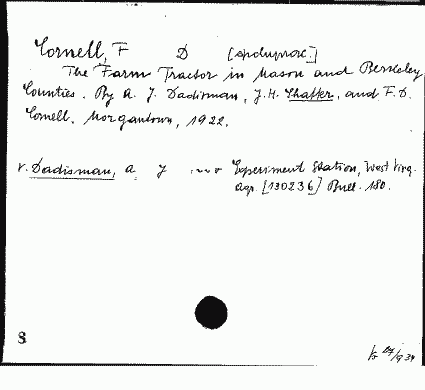 Cornell, F D
The Farm Tractor in Mason and Berkeley
Counties. By A. J. Dadisman, J. H. Shaffer, and F. D.
Cornell. Morgantown, 1922.
v. Dadisman, A J Experiment Station, West Virg.
Agr. [130236] Bull. 180.
8